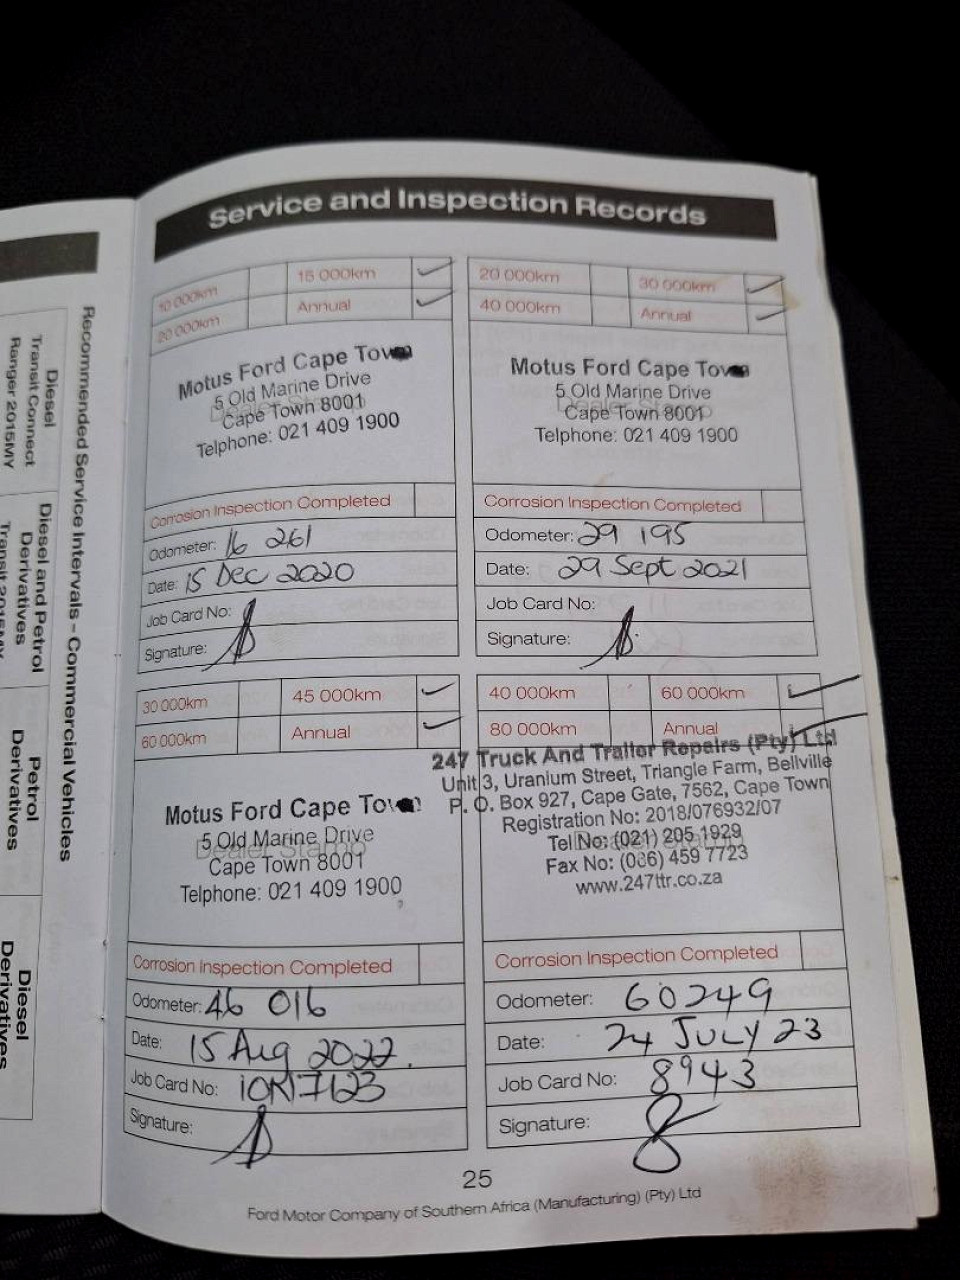 Service and Inspection Records
10 000km 15 000km
20 000km Annual
Motus Ford Cape Town
5 Old Marine Drive
Dealer Stamp
Cape Town 8001
Telphone: 021 409 1900
Corrosion Inspection Completed
Odometer: 16 261
Date: 15 Dec 2020
Job Card No:
Signature:
20 000km 30 000km
40 000km Annual
Motus Ford Cape Town
5 Old Marine Drive
Dealer Stamp
Cape Town 8001
Telphone: 021 409 1900
Corrosion Inspection Completed
Odometer: 29 195
Date: 29 Sept 2021
Job Card No:
Signature:
30 000km 45 000km
60 000km Annual
Motus Ford Cape Town
5 Old Marine Drive
Dealer Stamp
Cape Town 8001
Telphone: 021 409 1900
Corrosion Inspection Completed
Odometer: 46 016
Date: 15 Aug 2022.
Job Card No:
Signature:
40 000km 60 000km
80 000km Annual
247 Truck And Trailor Repairs (Pty) Ltd
Unit 3, Uranium Street, Triangle Farm, Bellville
P. O. Box 927, Cape Gate, 7562, Cape Town
Registration No: 2018/076932/07
Tel No: (021) 205 1929
Fax No: (086) 459 7723
www.247ttr.co.za
Corrosion Inspection Completed
Odometer: 60249
Date: 24 JULY 23
Job Card No: 8943
Signature:
25
Ford Motor Company of Southern Africa (Manufacturing) (Pty) Ltd
Recommended Service Intervals - Commercial Vehicles
Diesel
Transit Connect
Ranger 2015MY
Diesel and Petrol
Derivatives
Transit 2015MY
Petrol
Derivatives
Diesel
Derivatives